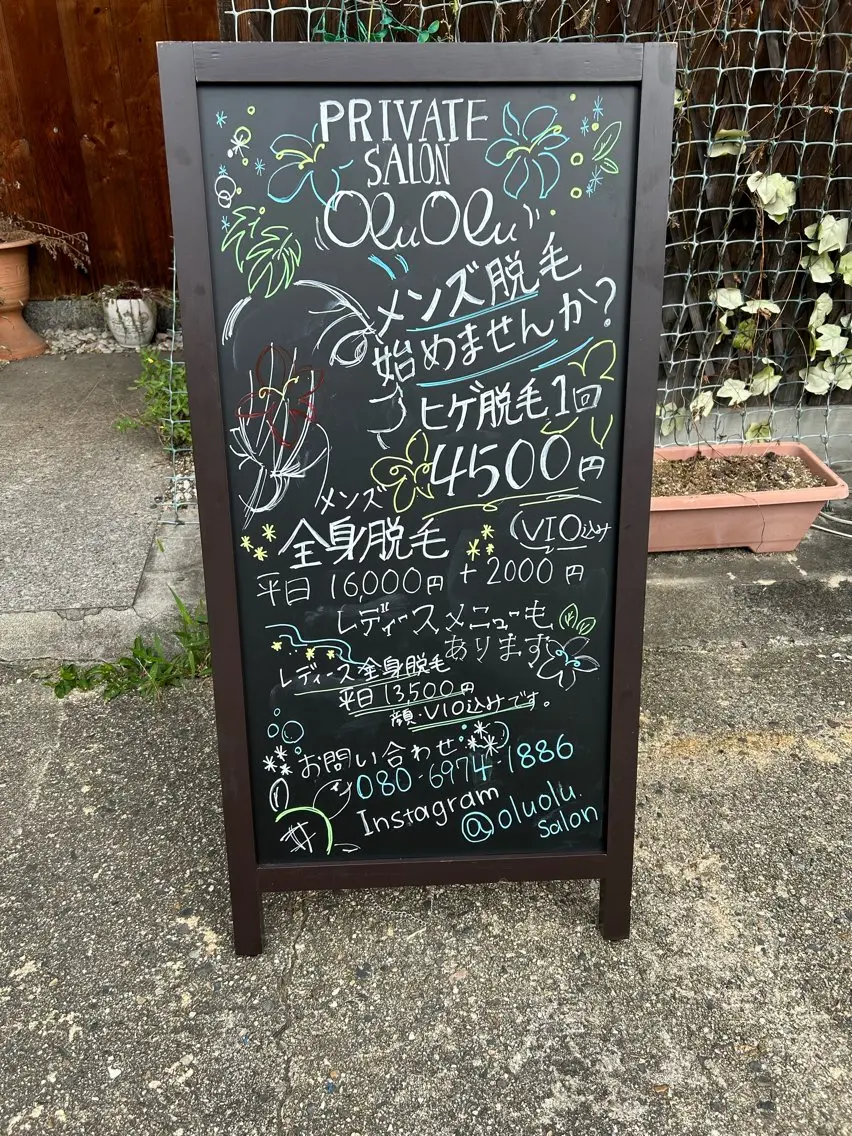 PRIVATE
SALON
OluOlu
メンズ脱毛
始めませんか?
ヒゲ脱毛1回
4500円
メンズ
全身脱毛 (VIO込み
平日 16,000円 + 2000円
レディースメニューも
あります
レディース全身脱毛
平日 13,500円
顔・VIO込みです。
お問い合わせ
080-6974-1886
Instagram
@oluolu.
salon